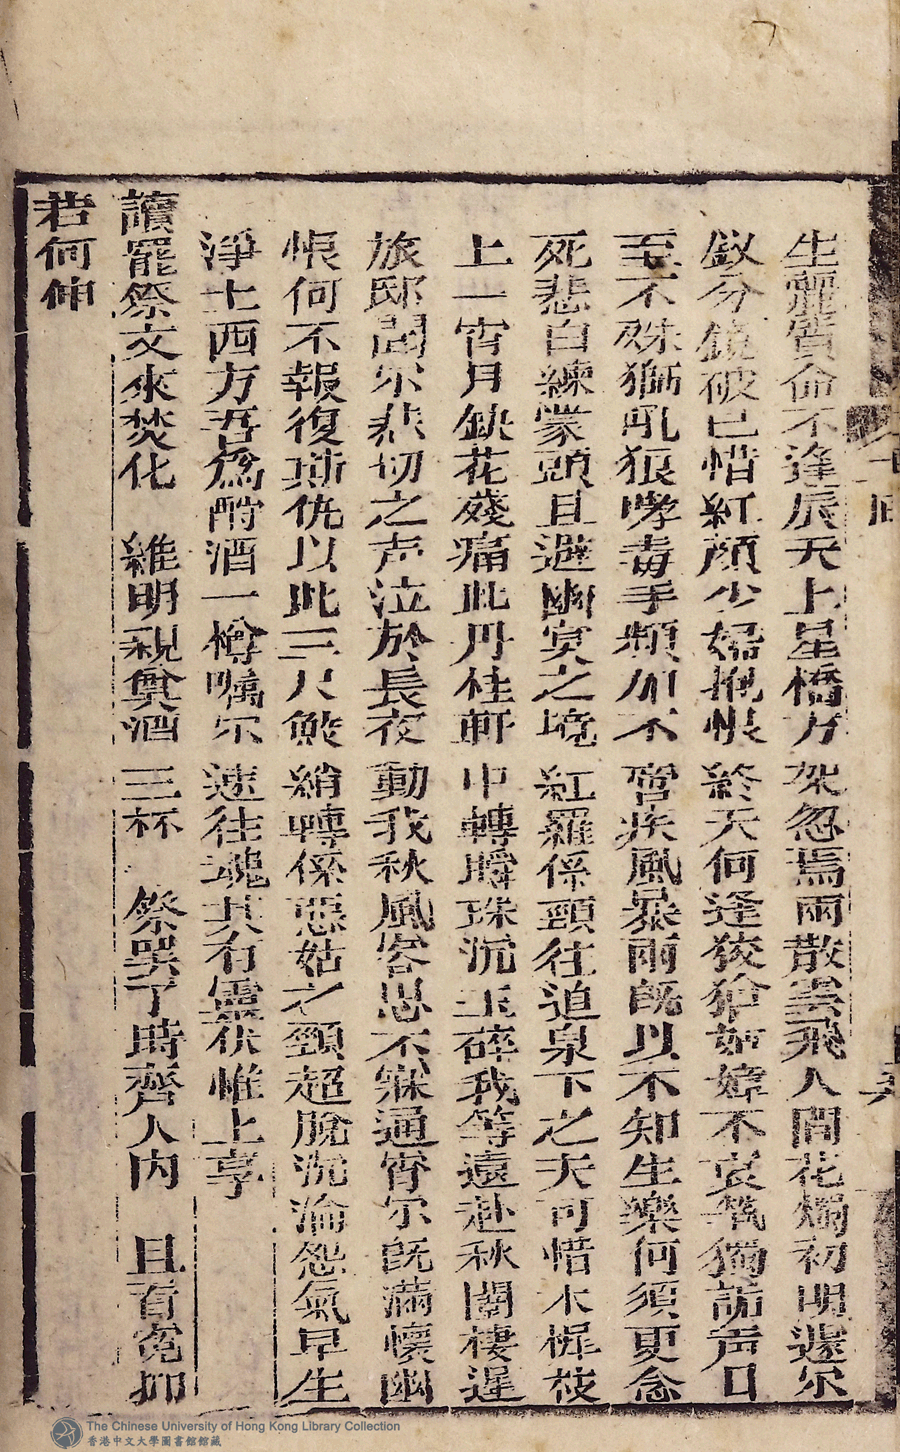 生麗質命不逢辰天上星橋方架忽焉雨散雲飛人間花燭初明遽尔
釵分鏡破已惜紅顏少婦抱恨終天何逢狡獪如嫜不哀煢獨詬声日
至不殊獅吼狠哮毒手頻加不啻疾風暴雨既以不知生樂何須更念
死悲白練蒙頭且遊幽冥之境紅羅係頸往追泉下之夫可惜木樨枝
上一宵月缺花殘痛此丹桂軒中轉瞬珠沉玉碎我等遠赴秋闈棲遲
旅邸聞尔悲切之声泣於長夜動我秋風客思不寐通宵尔既滿懷幽
恨何不報復斯仇以此三尺鮫綃轉係惡姑之頸超脫沉淪怨氣早生
淨土西方吾爲酹酒一樽囑尔速往魂其有靈伏惟上享
讀罷祭文來焚化 維明親奠酒三杯 祭奠了時齊人內 且看冤抑
若何伸
The Chinese University of Hong Kong Library Collection
香港中文大學圖書館館藏